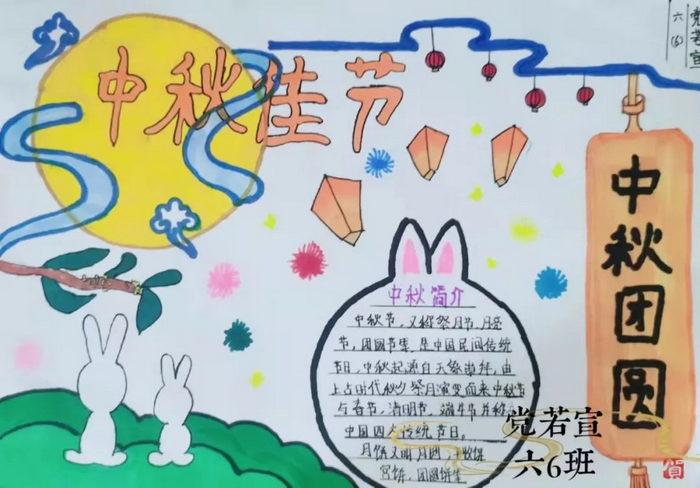 中秋佳节
党若宣
六(6)
中秋团圆
中秋简介
中秋节,又称祭月节、月夕
节、团圆节等,是中国民间传统
节日。中秋起源自天象崇拜,由
上古时代秋夕祭月演变而来。中秋节
与春节、清明节、端午节并称
中国四大传统节日。
月饼又叫月团、
宫饼、团圆饼
党若宣
六6班